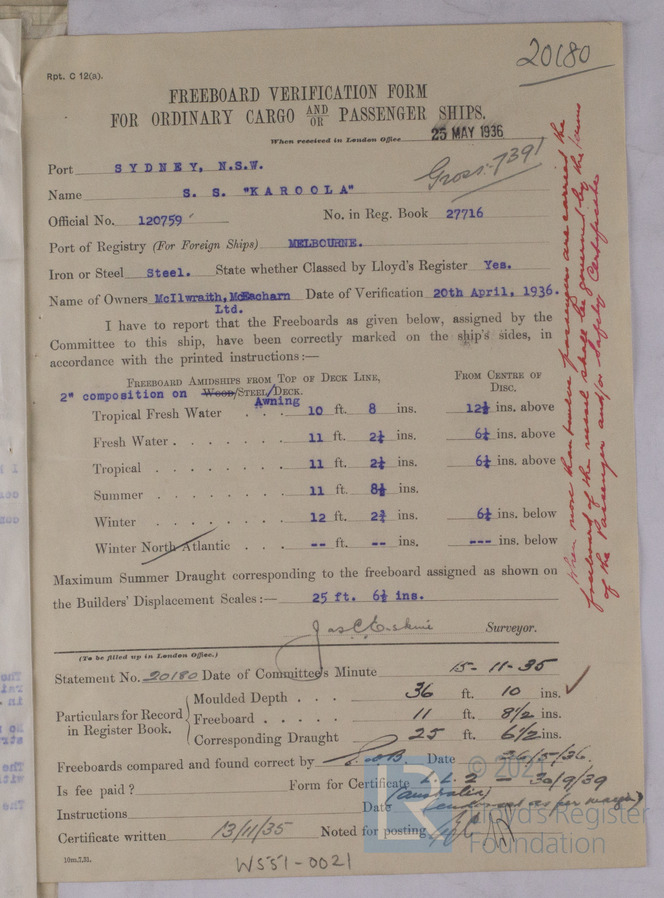 20180
Rpt. C 12(a).
FREEBOARD VERIFICATION FORM
FOR ORDINARY CARGO AND/OR PASSENGER SHIPS.
When received in London Office 25 MAY 1936
Gross:- 7391
Port SYDNEY, N.S.W.
Name S. S. "KAROOLA"
Official No. 120759 No. in Reg. Book 27716
Port of Registry (For Foreign Ships) MELBOURNE.
Iron or Steel Steel. State whether Classed by Lloyd's Register Yes.
Name of Owners McIlwraith, McEacharn Date of Verification 20th April, 1936.
Ltd.
I have to report that the Freeboards as given below, assigned by the
Committee to this ship, have been correctly marked on the ship's sides, in
accordance with the printed instructions:—
FREEBOARD AMIDSHIPS FROM TOP OF DECK LINE, FROM CENTRE OF
2" composition on WOOD/STEEL/DECK. DISC.
Awning
Tropical Fresh Water . . . 10 ft. 8 ins. 12½ ins. above
Fresh Water . . . . . . . 11 ft. 2¼ ins. 6¼ ins. above
Tropical . . . . . . . 11 ft. 2¼ ins. 6¼ ins. above
Summer . . . . . . . 11 ft. 8½ ins.
Winter . . . . . . . 12 ft. 2¾ ins. 6¼ ins. below
Winter North Atlantic . . . -- ft. -- ins. --- ins. below
Maximum Summer Draught corresponding to the freeboard assigned as shown on
the Builders' Displacement Scales:— 25 ft. 6½ ins.
Jas C Erskine Surveyor.
(To be filled up in London Office.)
Statement No. 20180 Date of Committee's Minute 15-11-35
Particulars for Record in Register Book.
Moulded Depth . . . 36 ft. 10 ins.
Freeboard . . . . . 11 ft. 8½ ins.
Corresponding Draught 25 ft. 6½ ins.
Freeboards compared and found correct by Date 26/5/36.
Is fee paid ? Form for Certificate L.L. 2 - 30/9/39
(Australia)
Instructions Date (endorsed as per margin)
Certificate written 13/11/35 Noted for posting
10m.7,31.
W551-0021
When more than twelve passengers are carried the
freeboard of the vessel shall be governed by the terms
of the Passenger and/or Safety Certificates
© 2021
Lloyd's Register
Foundation